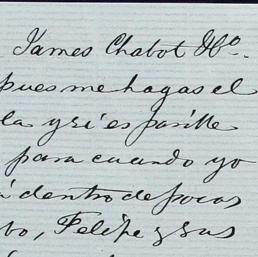 James Chabot Hº.
pues me hagas el
la y si es posible
para cuando yo
dentro de pocos
Felipe y sus